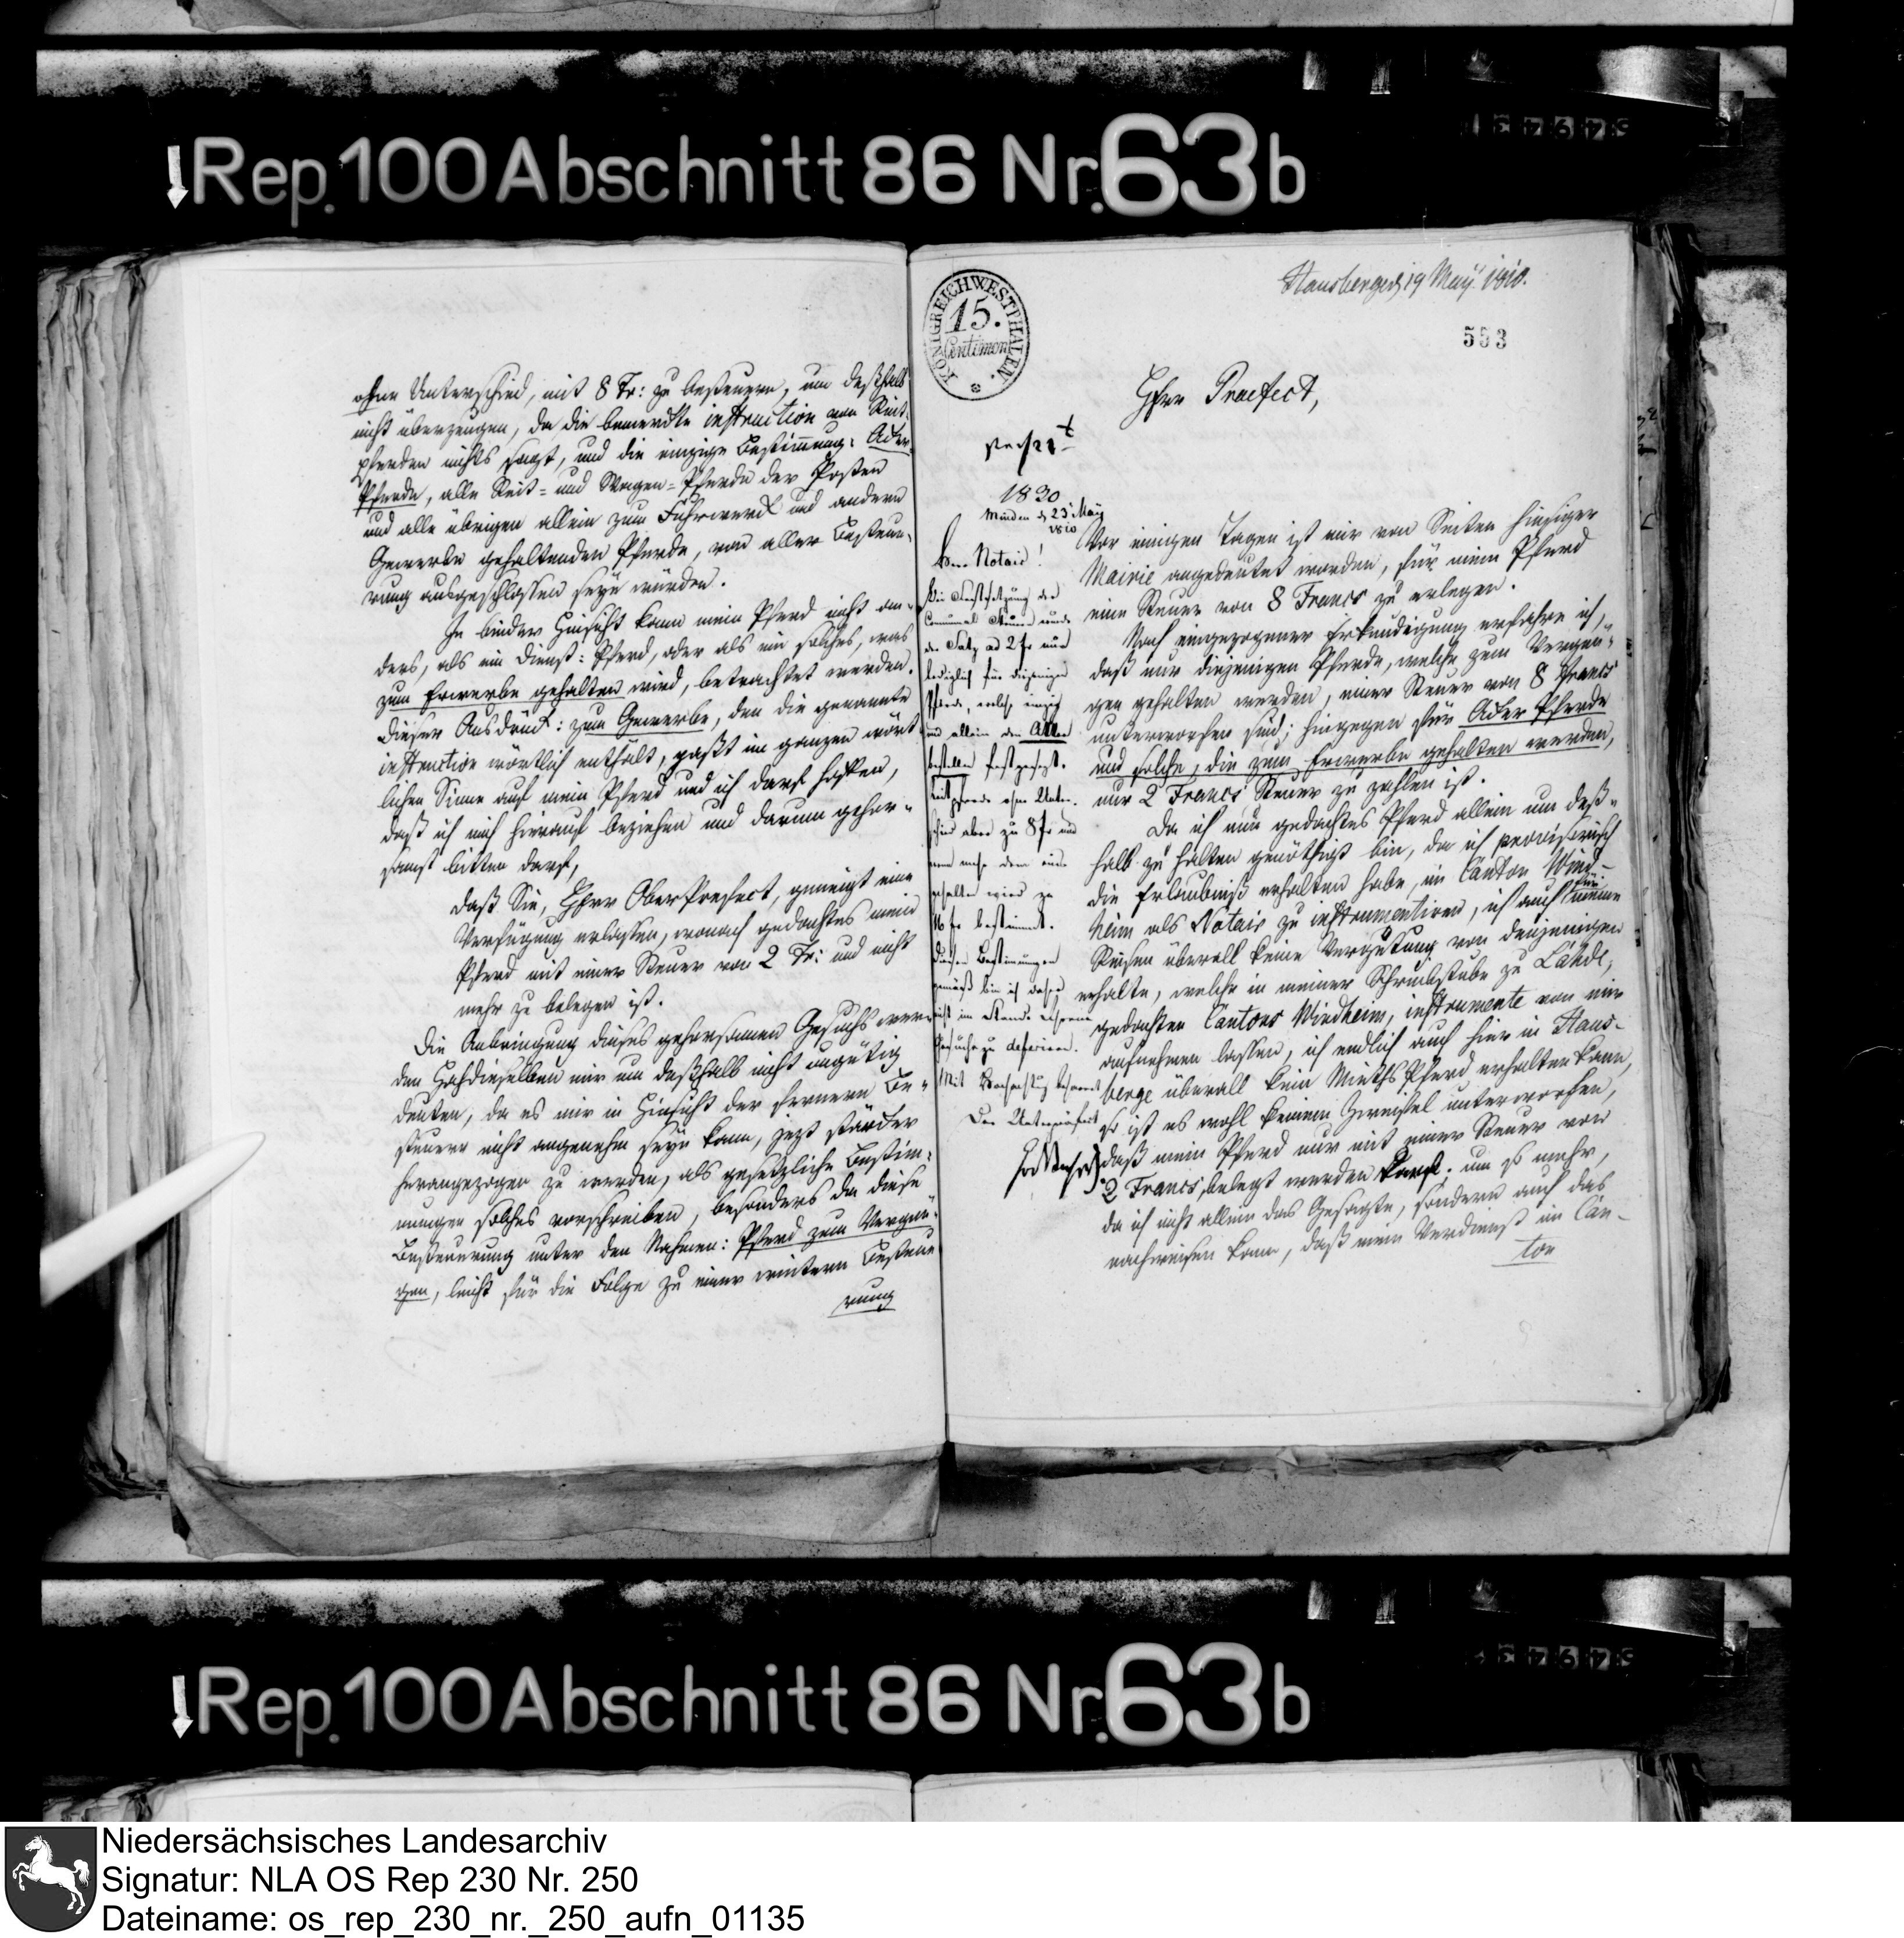 Rep. 100 Abschnitt 86 Nr. 63b
ohne Unterschied, mit 8 Fr: zu besteuern, um deßhalb
nicht überzeugen, da die bemerckte instruction von Reit-
pferden nichts sagt, und die einzige Bestimmung: Acker
Pferde, alle Reit- und Wagen-Pferde der Posten
und alle übrigen allein zum Fuhrwerck und andern
Gewerbe gehaltenden Pferde, von aller Besteue-
rung ausgeschlossen seyn würden.
In beider Hinsicht kann mein Pferd nicht an-
ders, als ein Dienst: Pferd, oder als ein solches, was
zum Erwerbe gehalten wird, betrachtet werden.
Dieser Ausdruck: zum Gewerbe, den die genannte
instruction wörtlich enthält, paßt im ganzen wört-
lichen Sinne auf mein Pferd und ich darf hoffen,
daß ich mich hierauf beziehen und darum gehor-
samst bitten darf,
daß Sie, Herr Ober Praefect, geneigt eine
Verfügung erlassen, wonach gedachtes mein
Pferd mit einer Steuer von 2 Fr: und nicht
mehr zu belegen ist.
Die Anbringung dieses gehorsamen Gesuchs wer-
den Hochdieselben mir um deßhalb nicht ungütig
deuten, da es mir in Hinsicht der fernern Be-
steuern nicht angenehm seyn kann, jezt stärcker
herangezogen zu werden, als gesetzliche Bestim-
mungen solches vorschreiben, besonders da diese
Besteuerung unter dem Nahmen: Pferd zum Vergnü-
gen, leicht für die Folge zu einer weitern Besteue
rung
KÖNIGREICH WESTPHALEN.
15.
Centimen
Hausberge d 19 May. 1810.
553
Herr Praefect,
1830
Minden d 23 May
1810
Herr Notair!
Bei Festsetzung der
Communal Steuer wurde
der Satz ad 2 fr nur
lediglich für diejenigen
Pferde, welche einzig
und allein den Acker
bestellen festgesezt.
Reitpferde ohne Unter-
schied aber zu 8 fr und
wenn mehr denn eins
gehalten wird zu
16 fr bestimmt.
Diesen Bestimmungen
gemäß bin ich daher
nicht im Stande Ihrem
Gesuche zu deferiren.
Mit Hochachtung
Der Unterpräfect
Vor einigen Tagen ist mir von Seiten hiesiger
Mairie angedeutet worden, für mein Pferd
eine Steuer von 8 Francs zu erlegen.
Nach eingezogener Erkundigung erfahre ich,
daß nur diejenigen Pferde, welche zum Vergnü-
gen gehalten werden, einer Steuer von 8 Francs
unterworfen sind; hingegen für Acker Pferde
und solche, die zum Erwerbe gehalten werden,
nur 2 Francs Steuer zu zahlen ist.
Da ich nun gedachtes Pferd allein um deß-
halb zu halten genöthigt bin, da ich provisorisch
die Erlaubniß erhalten habe, im Canton Wind-
heim als Notair zu instrumentiren, ich auch für meine
Reisen überall keine Vergütung von denjenigen
erhalte, welche in meiner Schreibstube zu Lahde,
gedachten Cantons Windheim, instrumente von mir
aufnehmen lassen, ich endlich auch hier in Haus-
berge überall kein Mieths Pferd erhalten kann,
so ist es wohl keinem Zweifel unterworfen,
daß mein Pferd nur mit einer Steuer von
2 Francs, belegt werden kann; um so mehr,
da ich nicht allein das Gesagte, sondern auch das
nachweisen kann, daß mein Verdienst im Can-
ton
Rep. 100 Abschnitt 86 Nr. 63b
Niedersächsisches Landesarchiv
Signatur: NLA OS Rep 230 Nr. 250
Dateiname: os_rep_230_nr._250_aufn_01135